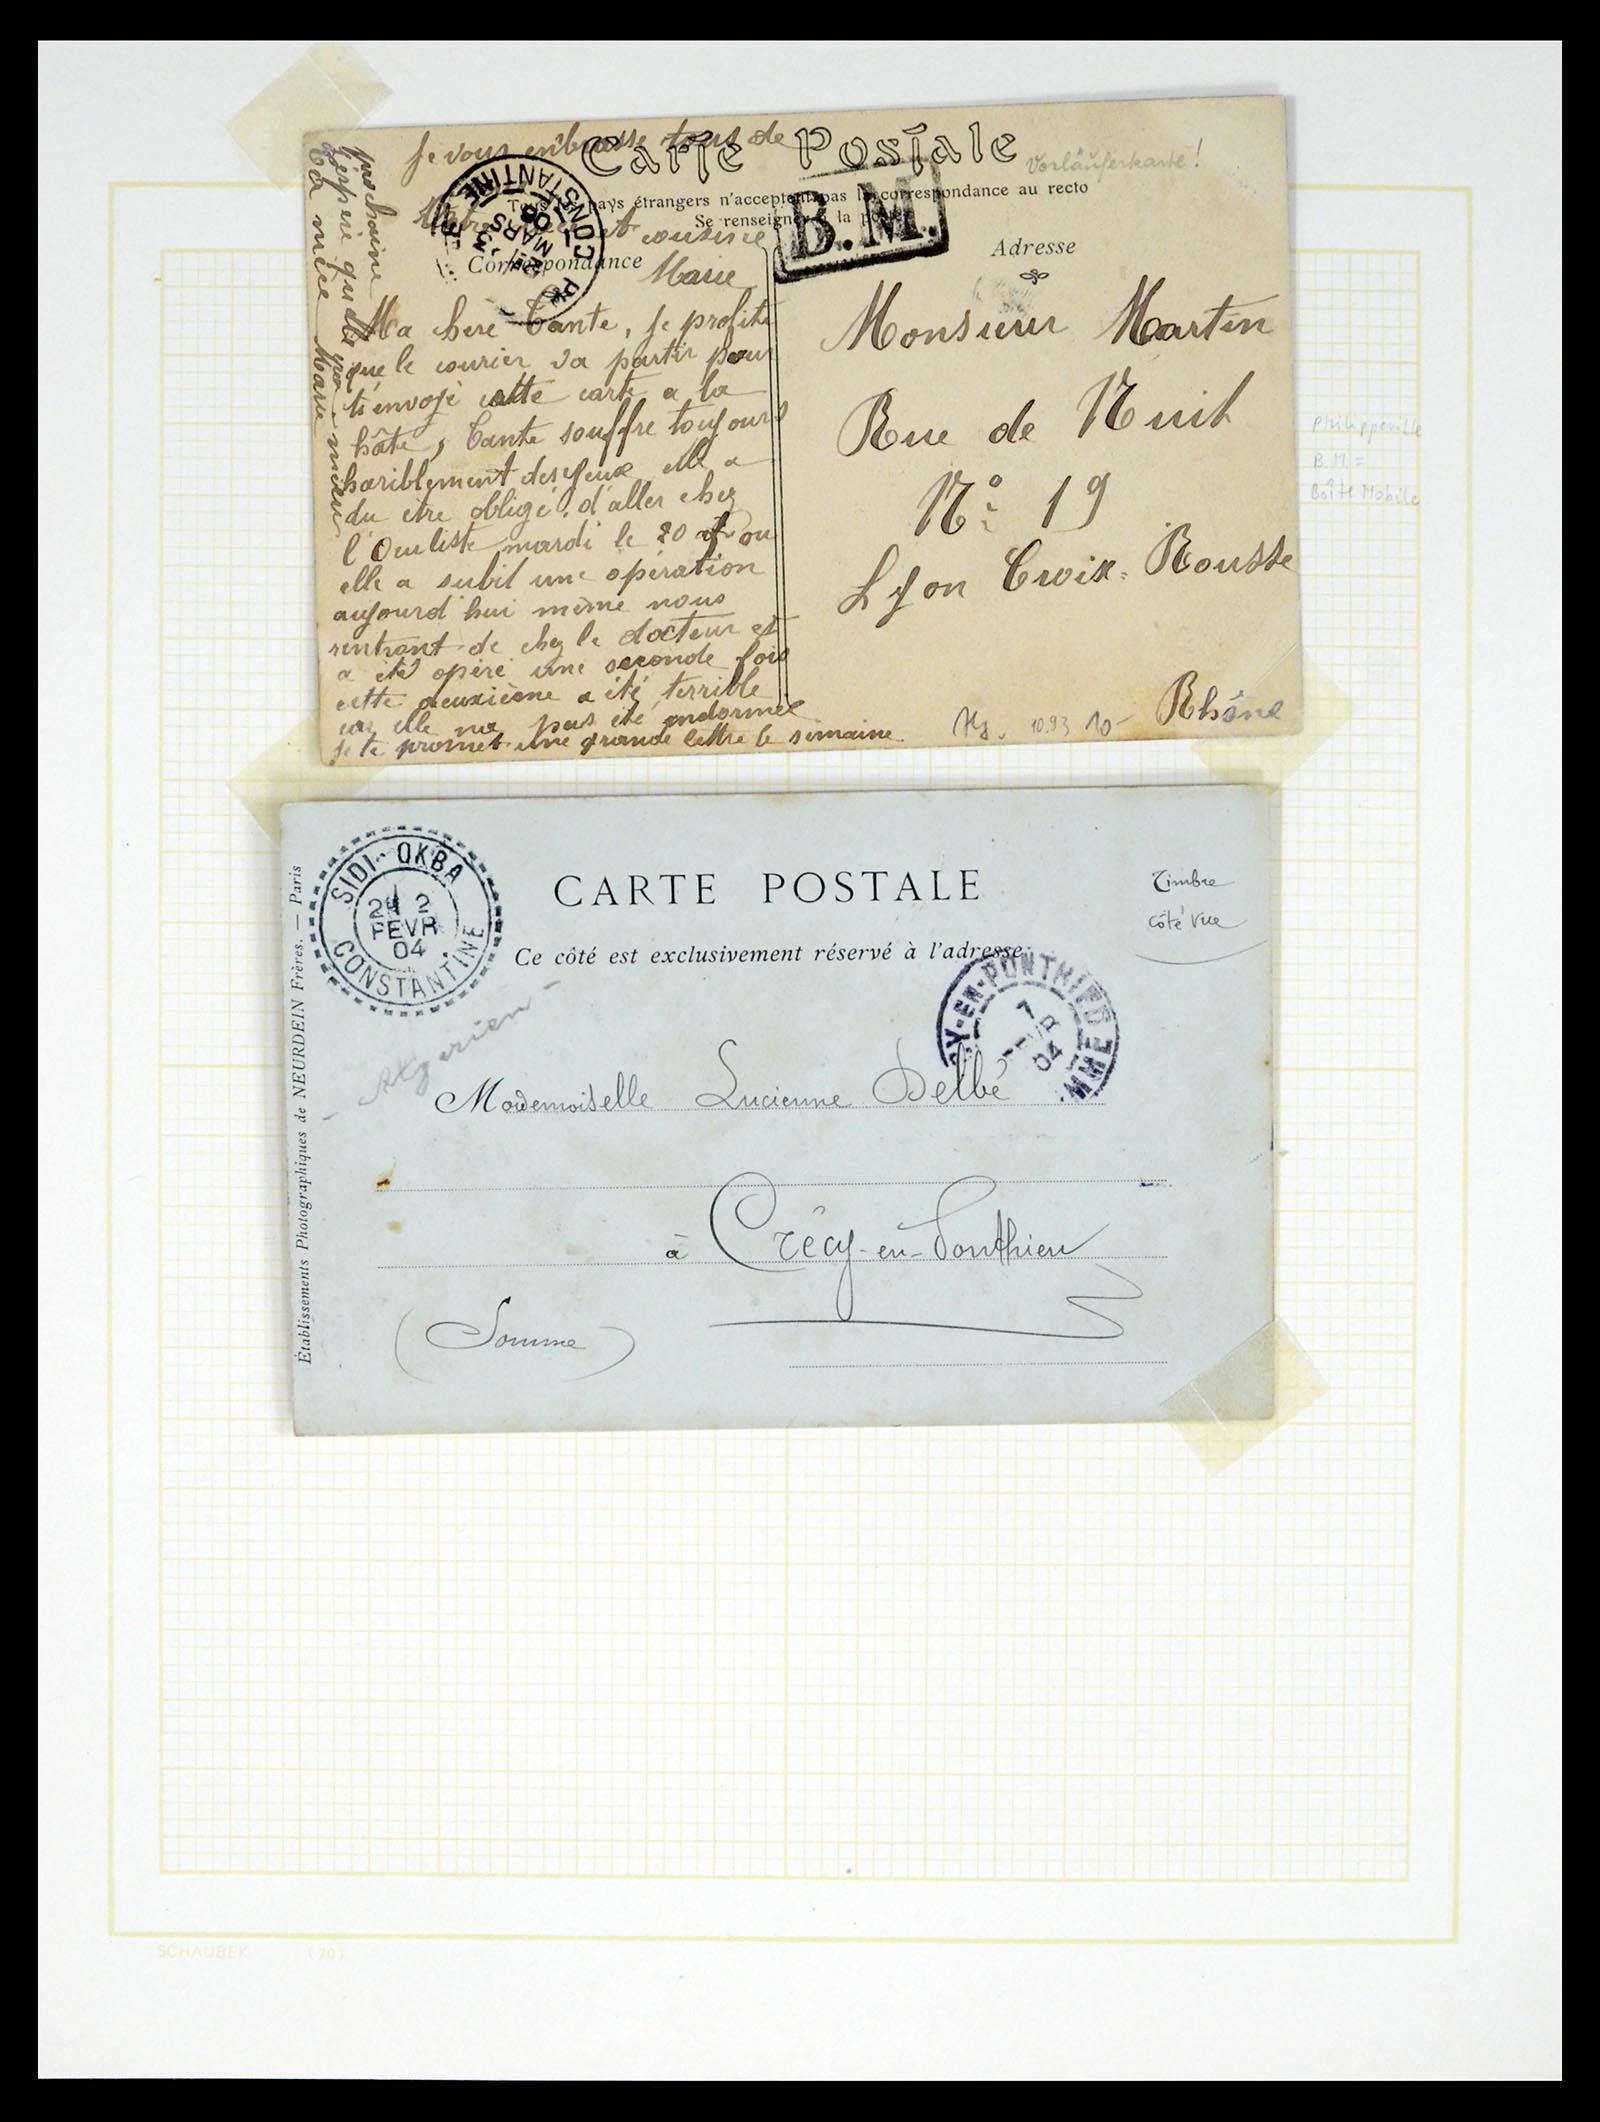 Je vous embrasse tous de
Carte Postale
Vorläuferkarte!
Tous les pays étrangers n'acceptent pas la correspondance au recto
Se renseigner à la poste
B.M.
CONSTANTINE
MARS
et cousine
Correspondance
Marie
Adresse
Ma chère Tante, je profite
que le courier va partir pour
t'envoyé cette carte a la
hâte, Tante souffre toujours
horiblement des yeux elle a
du être obligé d'aller chez
l'Oculiste mardi le 20 ou
elle a subit une opération
aujourd'hui même nous
rentrant de chez le docteur et
a été opéré une seconde fois
cette deuxième a été terrible
car elle na pas été endormée
je te promet une grande lettre la semaine
prochaine
j'espère que
Ta nièce Marie
Monsieur Martin
Rue de Nuit
N° 19
Lyon Croix-Rousse
Rhône
10.93 10-
Philippeville
B.M. =
Boîte Mobile
SIDI-OKBA
2
FEVR
04
CONSTANTINE
CARTE POSTALE
Timbre
côté vue
Ce côté est exclusivement réservé à l'adresse
Y-EN-PONTHIEU
7
04
MME
- Algerien -
Établissements Photographiques de NEURDEIN Frères. — Paris
Mademoiselle Lucienne Delbé
à Crécy-en-Ponthieu
(Somme)
SCHAUBEK (70)